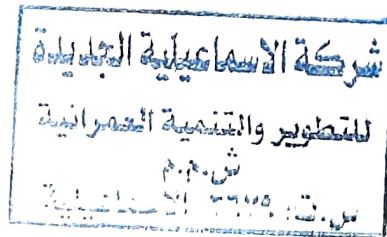 شركة الاسماعيلية الجديدة
للتطوير والتنمية العمرانية
ش.م.م
س.ت: الاسماعيلية